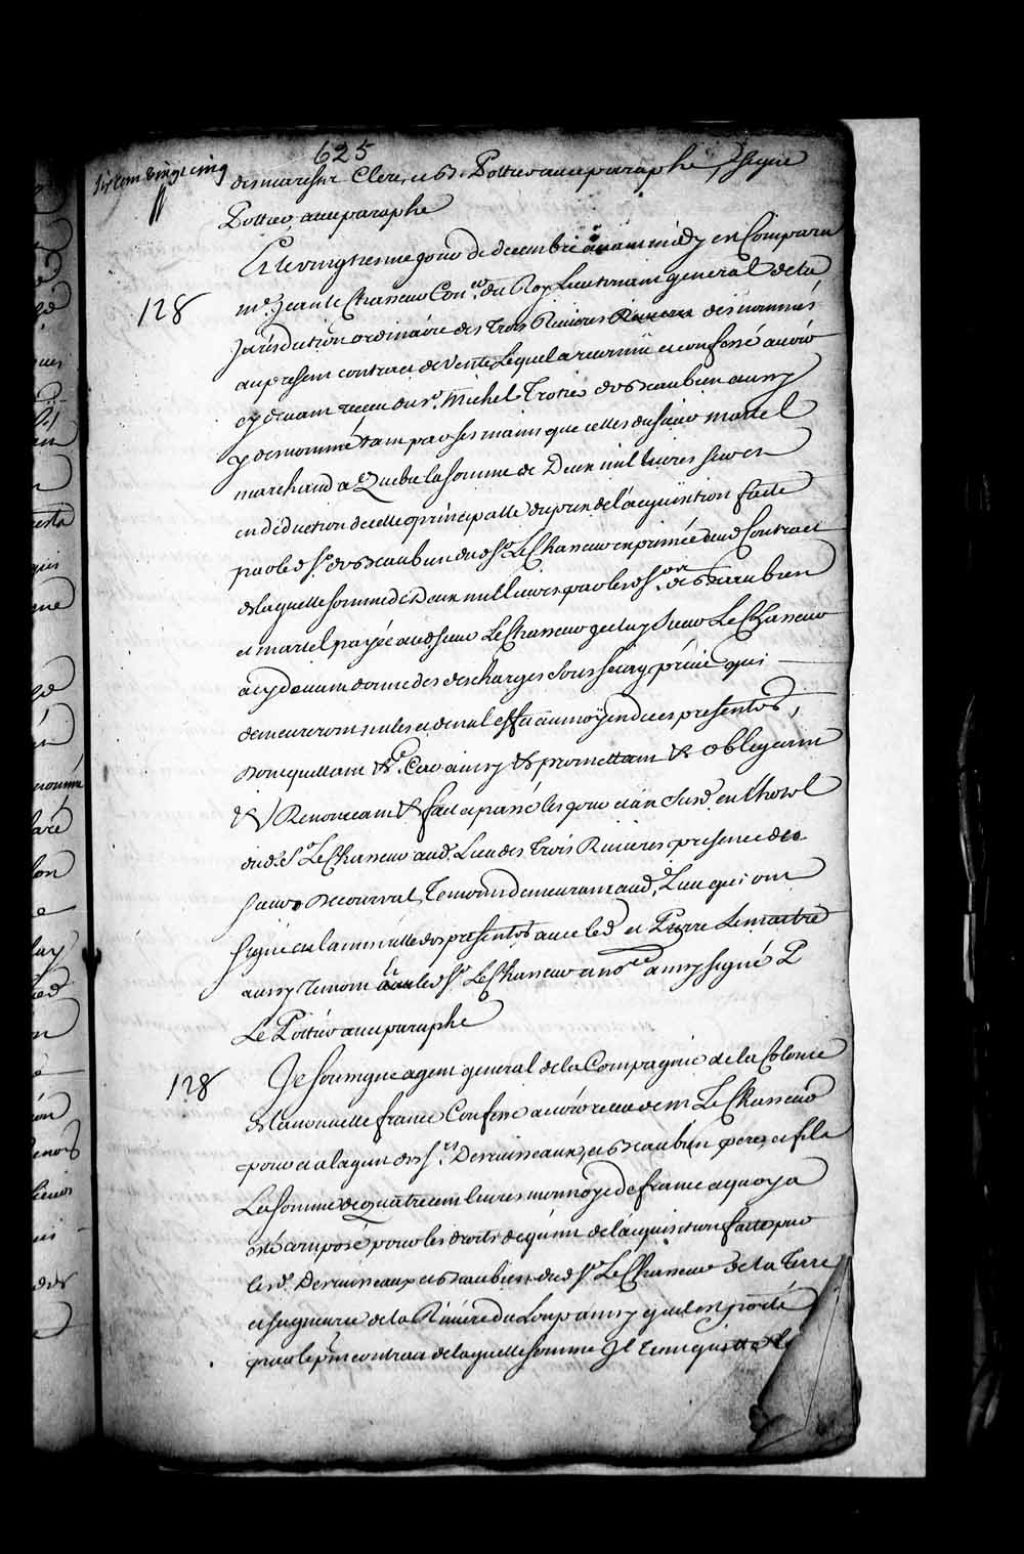 625
six cent vingt cinq
desmarest Clerc, et d. Pottier avec paraphe, signé
Pottier, avec paraphe
128
Et le vingtiesme jour de decembre avant midy en Comparu
me. Jean le Chasseur Coner. du Roy Lieutenant general de la
Jurisdiction ordinaire des trois Rivieres desnommés
au present contract de Vente Lequel a reconnu et confessé avoir
cy devant receu du sr. Michel Trotier desbeaubien aussy
y desnommé tant par ses mains que celles du sieur martel
marchand a Quebec la somme de Deux mil livres seur et
en deduction de celle principalle du prix de l'acquisition faite
par led. sr. desbeaubien dud. sr. Le Chasseur exprimée aud. Contract
de laquelle somme de Deux mil livres par lesd. srs. desbeaubien
et martel payée aud. sieur Le Chasseur Le Chasseur
a cy devant donné des descharges sous seing privé qui
demeureront nules et de nul effet au moyen de ces presentes,
Donc quittant &c. Car ainsy &c promettant &c obligeant
&c Renonceant &c fait et passé les jour et an susd. en l'hotel
dud. Sr. Le Chasseur aud. Lieu des trois Rivieres presence des
sieurs de courval, Temoins demeurant aud. Lieu qui ont
signé en la minutte des presentes avec led. et Pierre Lemaitre
aussy Temoin led. sr. Le Chasseur et nore. aussy signé P
Le Pottier avec paraphe
128
Je soussigné agent general de la Compagnie de la Colonie
de la nouvelle france Confesse avoir receu de mr. Le Chasseur
pour et a l'aquit des srs. Desruisseaux, et beaubien pere, et fils
La somme de quatre cent livres monnoye de france a quoy a
esté composé pour les droits de quint de l'acquisition faite par
lesd. Desruisseaux et beaubien dud. sr. Le Chasseur de la Terre
et seigneurie de la Riviere du Loup ainsy qu'il est porté
par le pnt. contract de laquelle somme Je